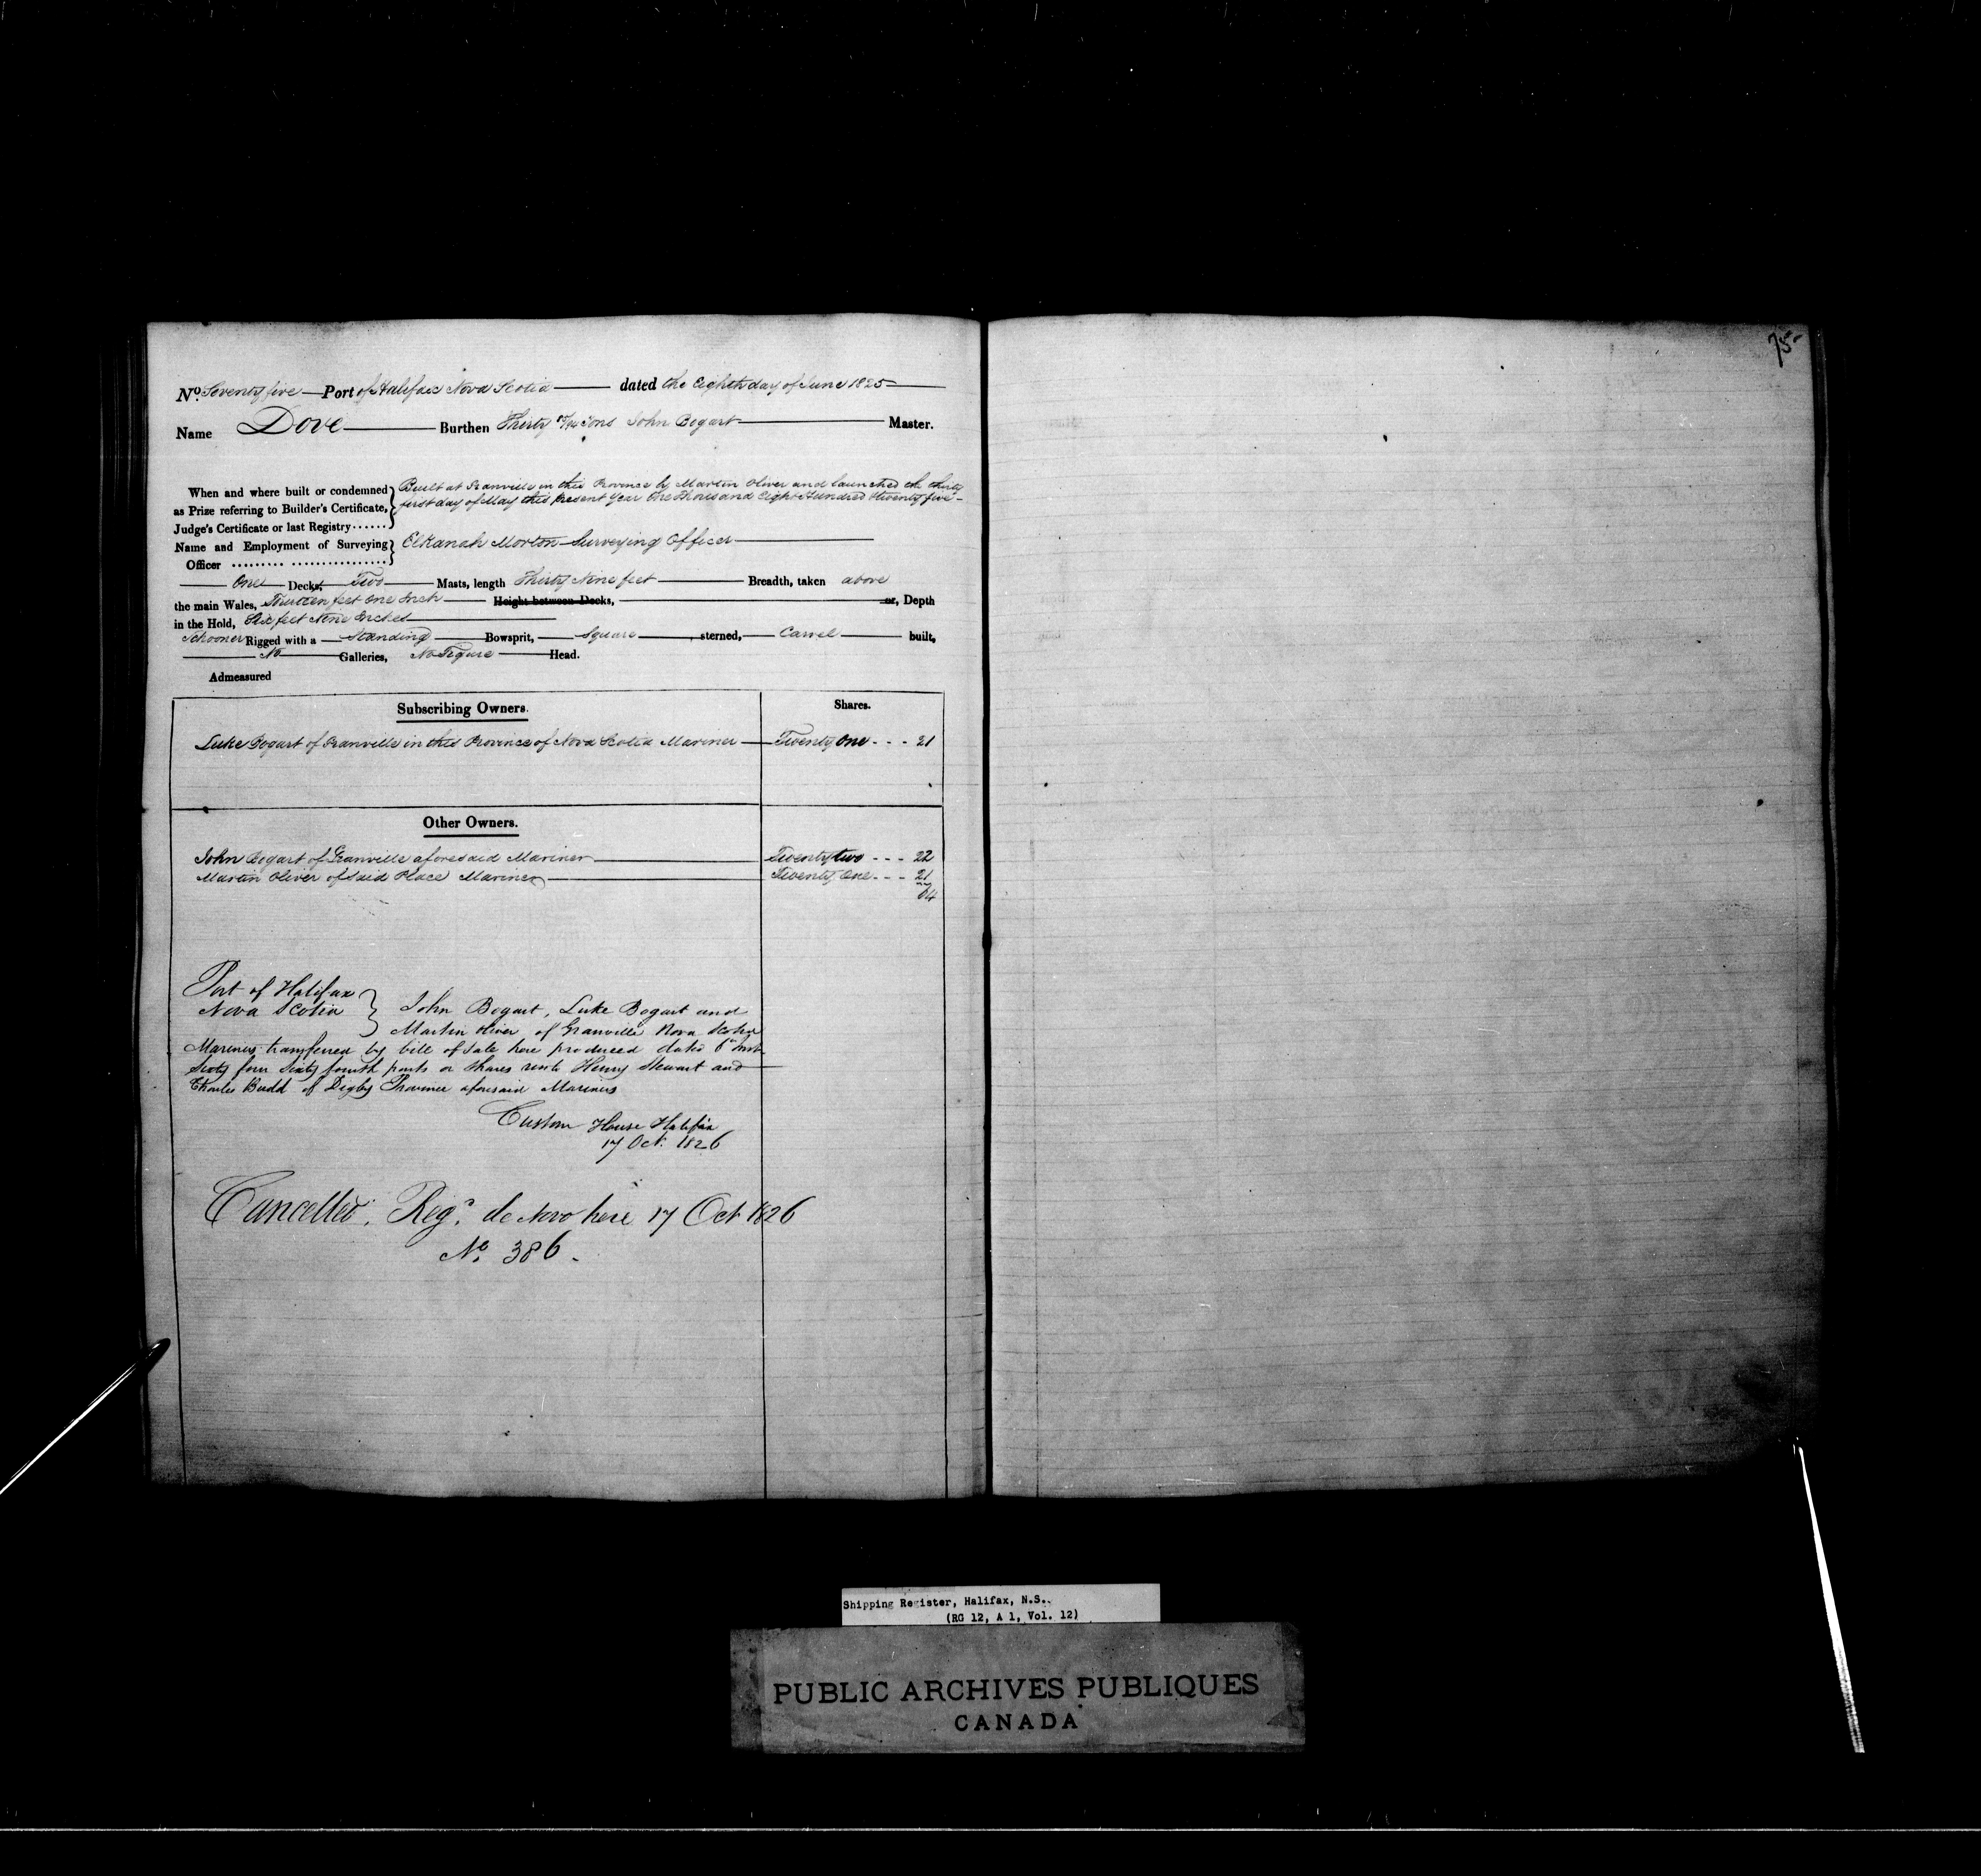 75
No. Seventy five Port of Halifax Nova Scotia dated the Eighth day of June 1825
Name Dove Burthen Thirty Tons John Bogart Master.
When and where built or condemned as Prize referring to Builder's Certificate, Judge's Certificate or last Registry
Built at Granville in this Province by Martin Oliver and launched the thirty
first day of May this present Year One Thousand Eight Hundred & twenty five
Name and Employment of Surveying Officer
Elkanah Morton Surveying Officer
One Decks, Two Masts, length Thirty Nine feet Breadth, taken above
the main Wales, feet One Inch Height between Decks, or, Depth
in the Hold, Six feet Nine Inches
Schooner Rigged with a Standing Bowsprit, Square sterned, Carvel built,
No Galleries, No Figure Head.
Admeasured
Subscribing Owners. Shares.
Luke Bogart of Granville in this Province of Nova Scotia Mariner Twenty One - - - 21
Other Owners.
John Bogart of Granville aforesaid Mariner Twenty two - - - 22
Martin Oliver of said Place Mariner Twenty One - - - 21
64
Port of Halifax
Nova Scotia } John Bogart, Luke Bogart and
Martin Oliver of Granville Nova Scotia
Mariners transferred by bill of Sale here produced dated 6th Inst
Sixty four Sixty fourth parts or Shares unto Henry Stewart and
Charles Budd of Digby Province aforesaid Mariners
Custom House Halifax
17 Oct. 1826
Cancelled. Regd. de Novo here 17 Oct 1826
No. 386.
Shipping Register, Halifax, N.S.
(RG 12, A 1, Vol. 12)
PUBLIC ARCHIVES PUBLIQUES
CANADA